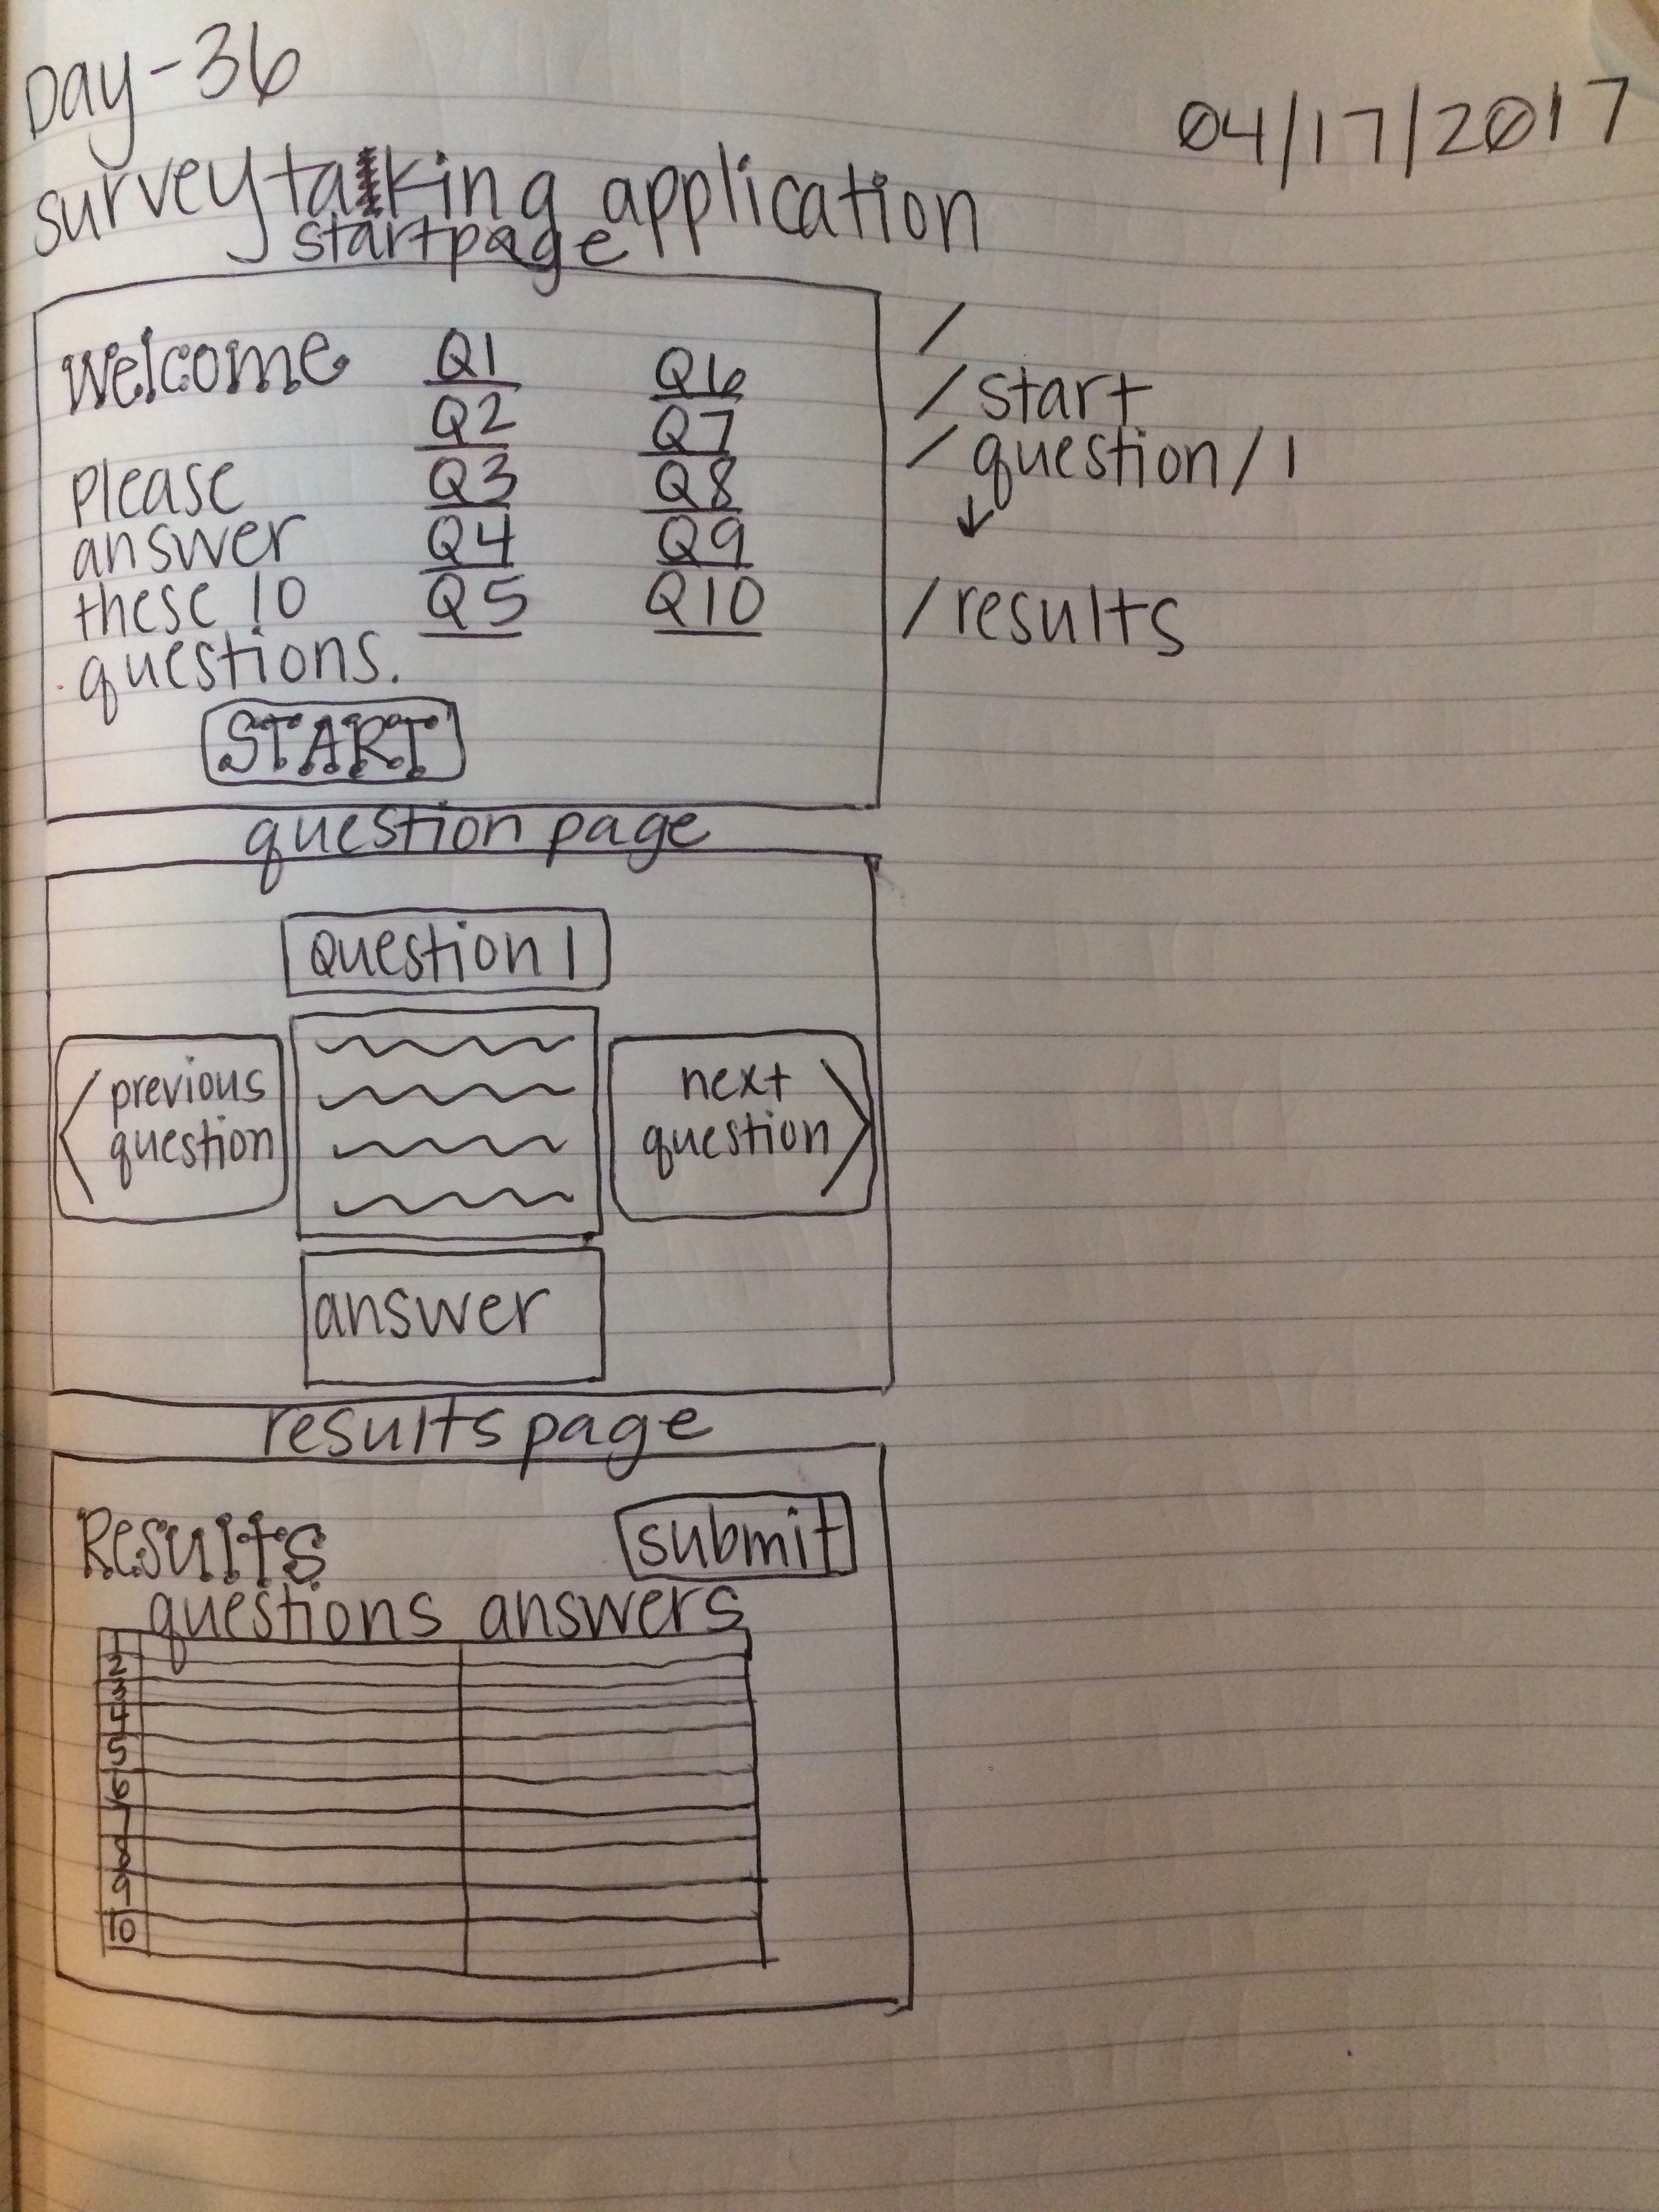 Day-36
04/17/2017
survey taking application
start page
Welcome
please
answer
these 10
questions.
Q1
Q2
Q3
Q4
Q5
Q6
Q7
Q8
Q9
Q10
START
/
/start
/question/1
↓
/results
question page
Question 1
< previous
question
next >
question
answer
results page
Results
submit
questions answers
1
2
3
4
5
6
7
8
9
10